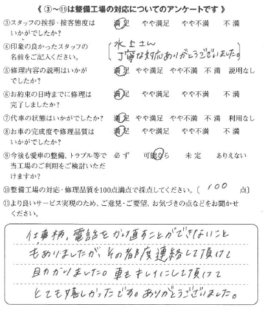 《 ③～⑪は整備工場の対応についてのアンケートです 》
③スタッフの挨拶・接客態度は 満足 やや満足 やや不満 不満
いかがでしたか?
④印象の良かったスタッフの 水上さん
名前をご記入ください。 丁寧な対応ありがとうございました。
⑤修理内容の説明はいかが 満足 やや満足 やや不満 不満 説明なし
でしたか?
⑥お約束の日時までに修理は 満足 やや満足 やや不満 不満
完了しましたか?
⑦代車の状態はいかがでしたか? 満足 やや満足 やや不満 不満 利用なし
⑧お車の完成度や修理品質は 満足 やや満足 やや不満 不満
いかがでしたか?
⑨今後も愛車の整備、トラブル等で 必ず 可能なら 未定 ありえない
当工場のご利用をご検討いただ
けますか?
⑩整備工場の対応・修理品質を100点満点で採点してください。〔 100 点〕
⑪より良いサービス実現のため、ご意見・ご要望、お気づきの点などをお聞かせ
ください。
仕事柄、電話をかけ直すことができないこと
もありましたが、その都度連絡して頂けて
助かりました。車もキレイにして頂けて
とても嬉しかったです。ありがとうございました。